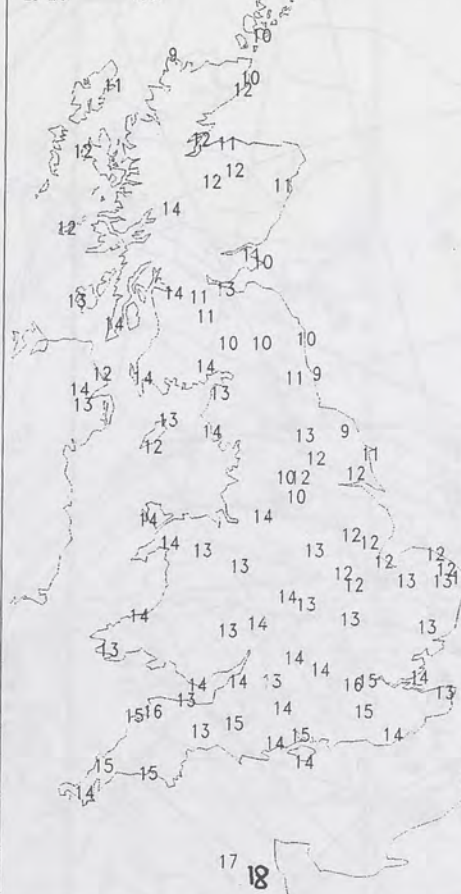 10
9
10
12
11
12
12 11
12
12 11
14
12
10
13 14 11 13
11
14
10 10 10
14
12 14 11 9
14 13
13
13
14 13 9
12 12 11
10 12 12
10
14 14
12 12
14 13 13 12 12
13 12 12
12 13 13
14 13
14 13
13 14 13
13
14
14
14 14 13 16 15 14
13 13
15 16 14 15
13 14 15 14
14
14
15 15
14
17 18